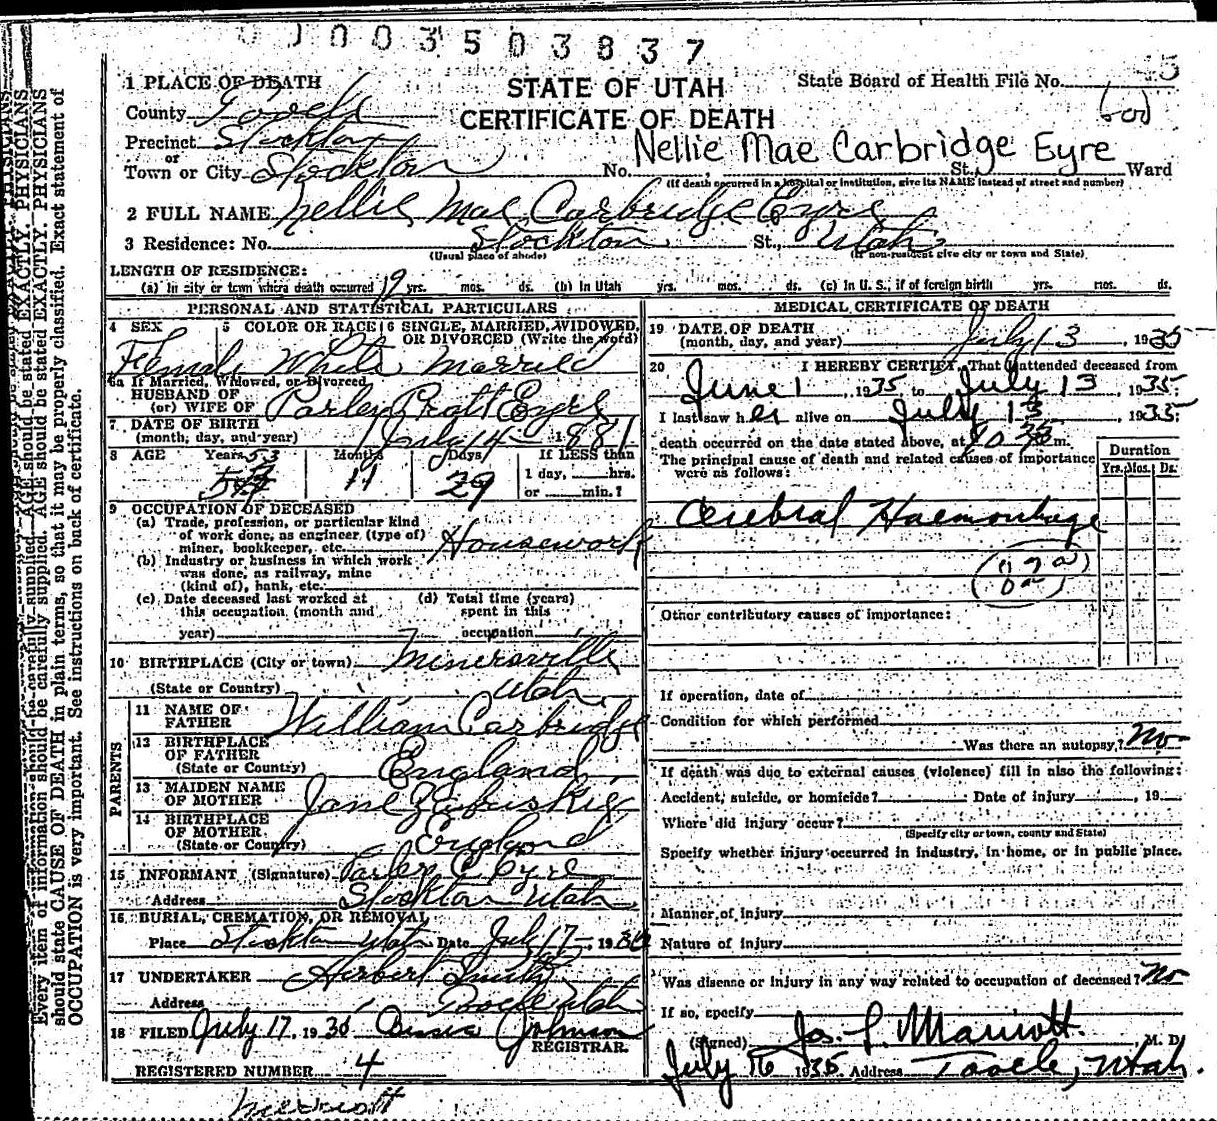 003503837
1 PLACE OF DEATH
STATE OF UTAH
CERTIFICATE OF DEATH
State Board of Health File No.
County Tooele
Precinct Stockton
or
Town or City Stockton No. St., Ward
Nellie Mae Carbridge Eyre
(If death occurred in a hospital or institution, give its NAME instead of street and number)
2 FULL NAME Nellie Mae Carbridge Eyre
3 Residence: No. Stockton St., Utah
(Usual place of abode) (If non-resident give city or town and State)
LENGTH OF RESIDENCE:
(a) In city or town where death occurred 19 yrs. mos. ds. (b) In Utah yrs. mos. ds. (c) In U. S., if of foreign birth yrs. mos. ds.
PERSONAL AND STATISTICAL PARTICULARS
4 SEX 5 COLOR OR RACE 6 SINGLE, MARRIED, WIDOWED, OR DIVORCED (Write the word)
Female White Married
6a If Married, Widowed, or Divorced
HUSBAND OF
(or) WIFE OF Parley Pratt Eyre
7 DATE OF BIRTH
(month, day, and year) July 14 - 1881
8 AGE Years Months Days If LESS than
53 11 29 1 day, hrs.
or min.?
9 OCCUPATION OF DECEASED
(a) Trade, profession, or particular kind
of work done, as engineer, (type of)
miner, bookkeeper, etc. Housework
(b) Industry or business in which work
was done, as railway, mine
(kind of), bank, etc.
(c) Date deceased last worked at
this occupation, (month and
year)
(d) Total time (years)
spent in this
occupation
10 BIRTHPLACE (City or town) Minersville
(State or Country) Utah
PARENTS
11 NAME OF
FATHER William Carbridge
12 BIRTHPLACE
OF FATHER
(State or Country) England
13 MAIDEN NAME
OF MOTHER Jane
14 BIRTHPLACE
OF MOTHER
(State or Country) England
15 INFORMANT (Signature) Parley P Eyre
Address Stockton Utah
16 BURIAL, CREMATION, OR REMOVAL
Place Stockton Utah Date July 17 -, 19
17 UNDERTAKER Herbert Smith
Address Tooele Utah
18 FILED July 17, 1935 Johnson
REGISTRAR.
REGISTERED NUMBER 4
Merriott
MEDICAL CERTIFICATE OF DEATH
19 DATE OF DEATH
(month, day, and year) July 13, 1935
20 I HEREBY CERTIFY, That I attended deceased from
June 1, 1935 to July 13 1935
I last saw her alive on July 13 1935
death occurred on the date stated above, at m.
The principal cause of death and related causes of importance
were as follows:
Duration
Yrs. Mos. Ds.
Cerebral Haemorrhage
Other contributory causes of importance:
If operation, date of
Condition for which performed
Was there an autopsy? No
If death was due to external causes (violence) fill in also the following:
Accident, suicide, or homicide? Date of injury, 19
Where did injury occur?
(Specify city or town, county and State)
Specify whether injury occurred in industry, in home, or in public place.
Manner of injury
Nature of injury
Was disease or injury in any way related to occupation of deceased? No
If so, specify
(Signed) Jos. L. Marriott, M. D.
July 16 1935 Address Tooele, Utah.
Every item of information should be carefully supplied. AGE should be stated EXACTLY. PHYSICIANS
should state CAUSE OF DEATH in plain terms, so that it may be properly classified. Exact statement of
OCCUPATION is very important. See instructions on back of certificate.